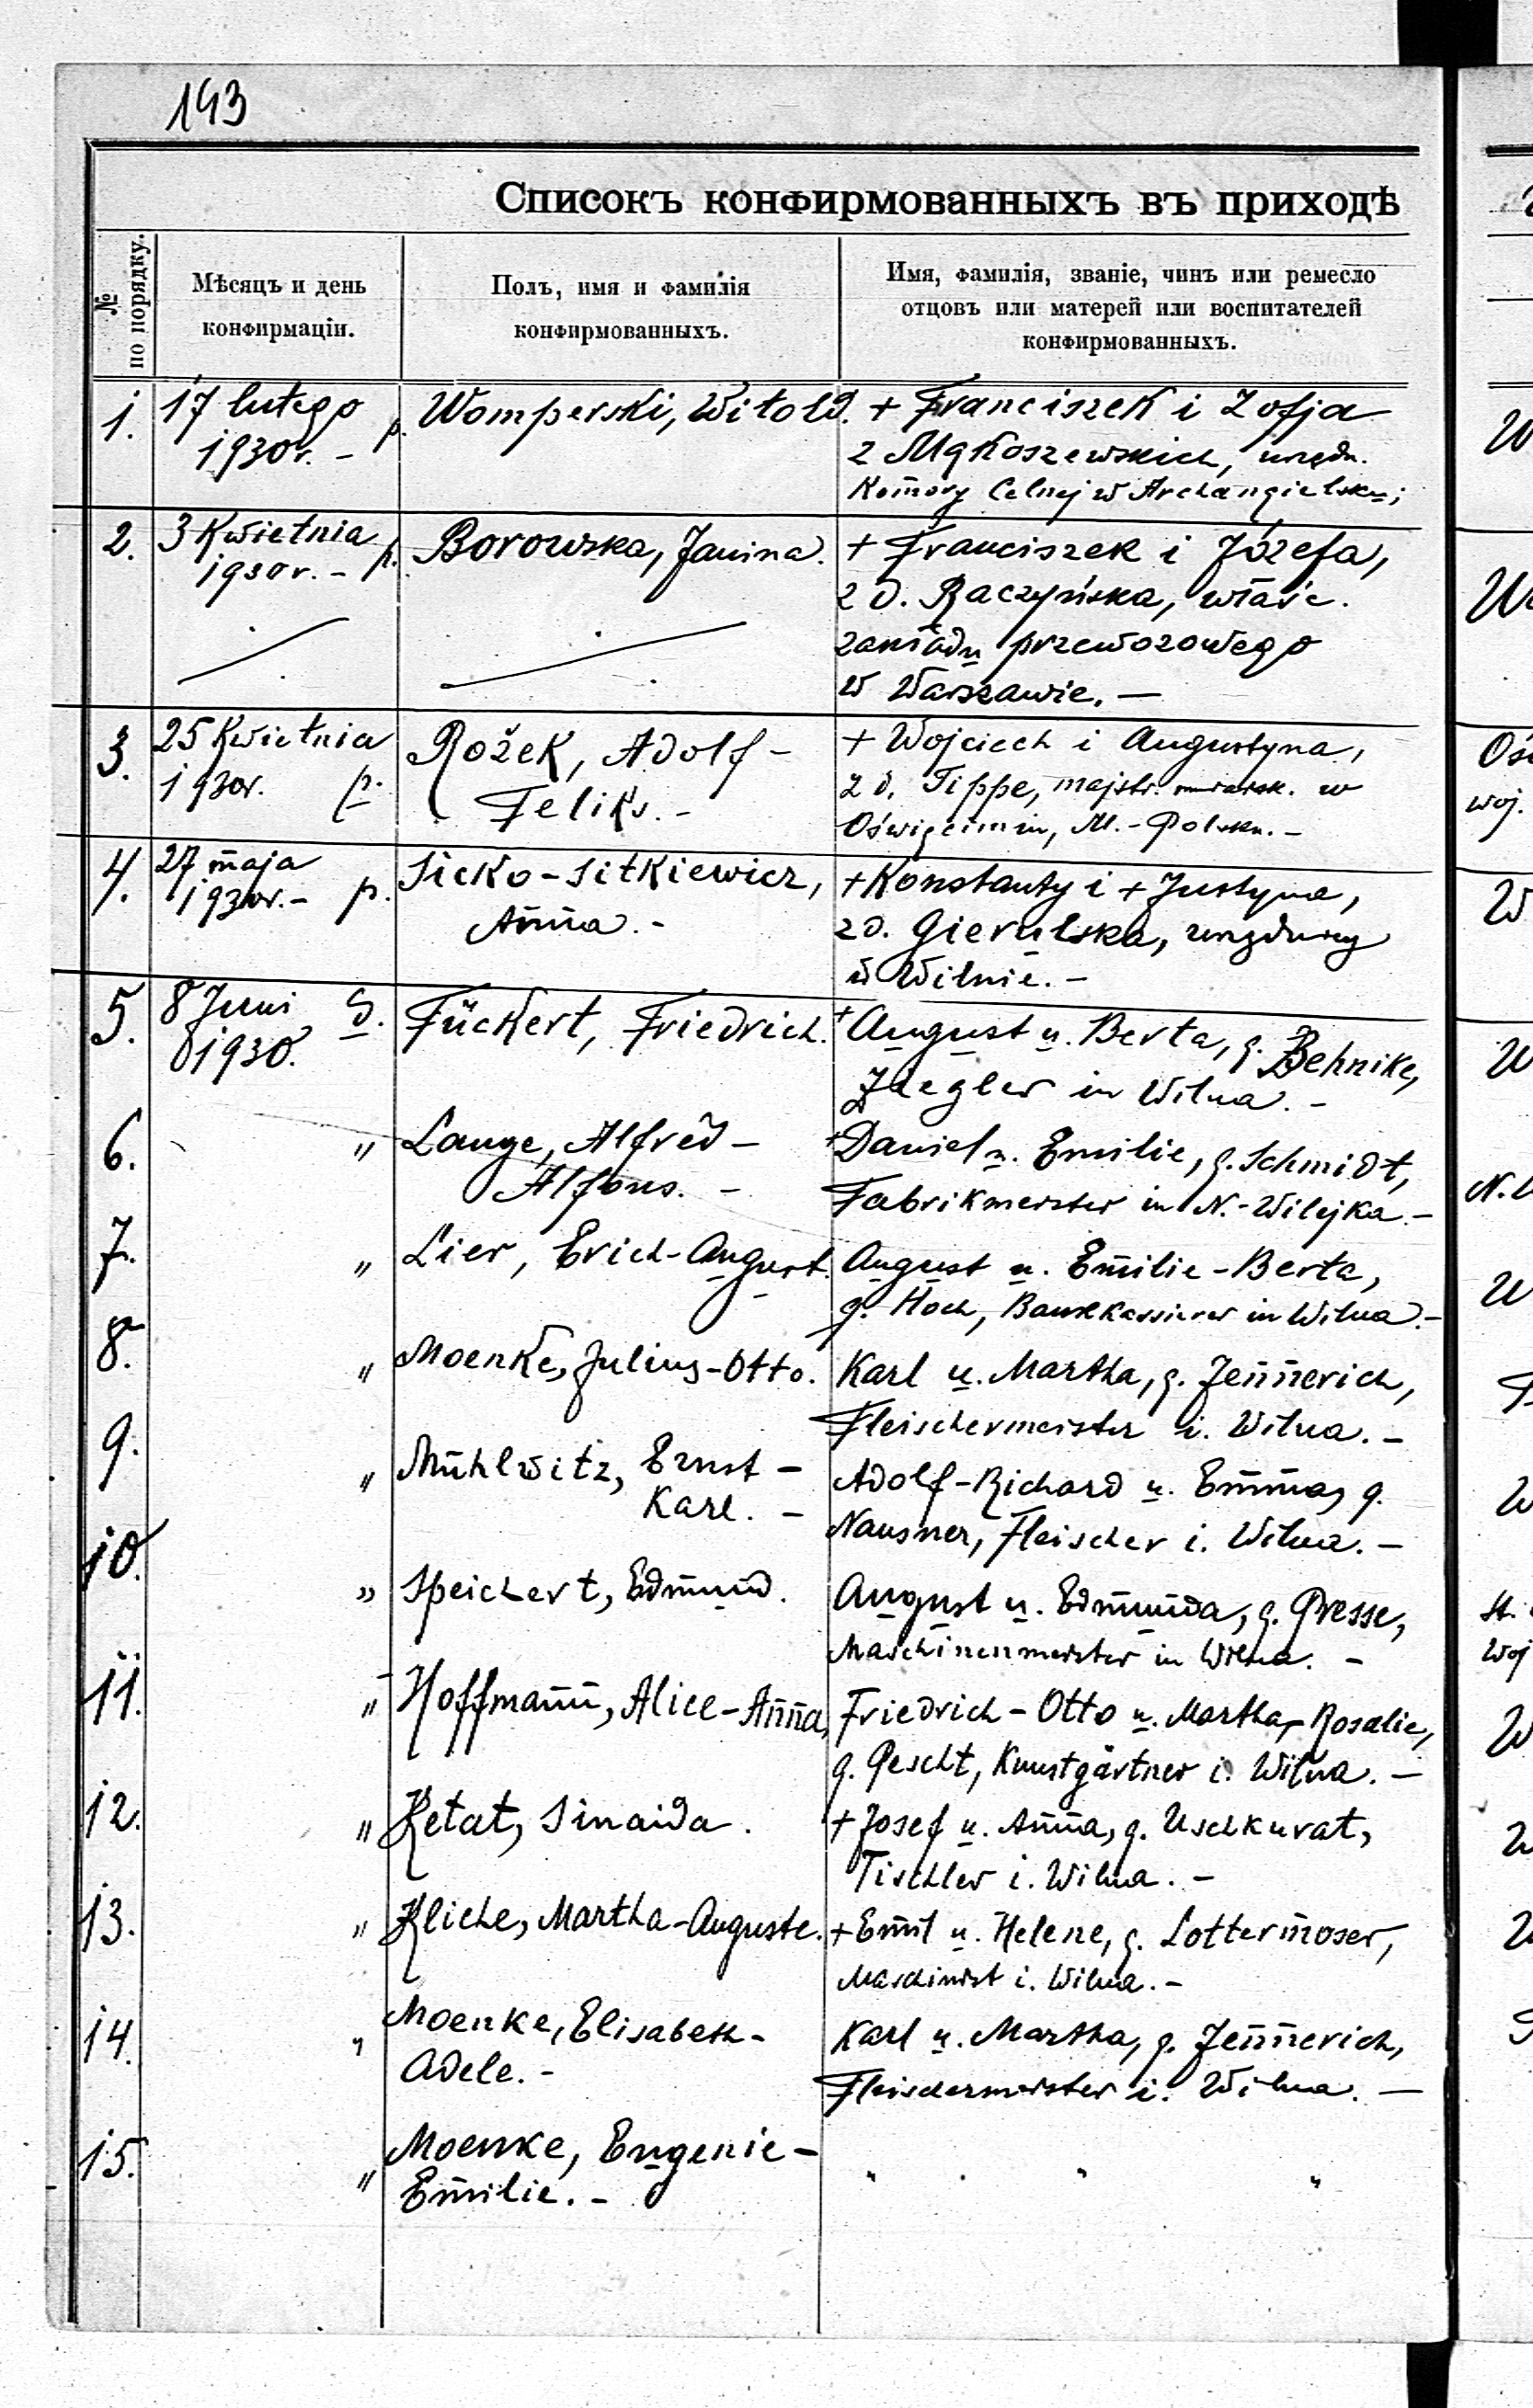 193
Списокъ конфирмованныхъ въ приходѣ
№ по порядку.
Мѣсяцъ и день
конфирмаціи.
Полъ, имя и фамилія
конфирмованныхъ.
Имя, фамилія, званіе, чинъ или ремесло
отцовъ или матерей или воспитателей
конфирмованныхъ.
1. 17 lutego p. Womperski, Witold. + Franciszek i Zofja
1930r. - z Mąkoszewskich, urzędn.
Komory Celnej w Archangielsku;
2. 3 Kwietnia p. Borowska, Janina. + Franciszek i Józefa,
1930r. - z d. Raczyńska, właśc.
zakładu przewozowego
w Warszawie. —
3. 25 Kwietnia Rożek, Adolf - + Wojciech i Augustyna,
1930r. p. Feliks. - z d. Tippe, majstr. murarsk. w
Oświęcimiu, M.-Polska. -
4. 27 maja p. Sicko-Sitkiewicz, + Konstanty i + Justyna,
1930r. - Anna. - z d. Gierulska, urzędnicy
w Wilnie. -
5. 8 Juni d. Fückert, Friedrich. + August u. Berta, g. Behnike,
1930. Ziegler in Wilna. -
6. " Lange, Alfred - + Daniel u. Emilie, g. Schmidt,
Alfons. - Fabrikmeister in N.-Wilejka. -
7. " Lier, Erich-August. August u. Emilie-Berta,
g. Hoch, Bankkassierer in Wilna. -
8. " Moenke, Julius-Otto. Karl u. Martha, g. Jennerich,
Fleischermeister i. Wilna. -
9. " Mühlwitz, Ernst - Adolf-Richard u. Emma, g.
Karl. - Nausner, Fleischer i. Wilna. -
10. " Speichert, Edmund. August u. Edmunda, g. Presse,
Maschinenmeister in Wilna. -
11. " Hoffmann, Alice-Anna, Friedrich-Otto u. Martha-Rosalie,
g. Pescht, Kunstgärtner i. Wilna. -
12. " Ketat, Sinaida. + Josef u. Anna, g. Uschkurat,
Tischler i. Wilna. -
13. " Kliche, Martha-Auguste. + Emil u. Helene, g. Lottermoser,
Maschinist i. Wilna. -
14. " Moenke, Elisabeth- Karl u. Martha, g. Jennerich,
Adele. - Fleischermeister i. Wilna. -
15. " Moenke, Eugenie- " " "
Emilie. -